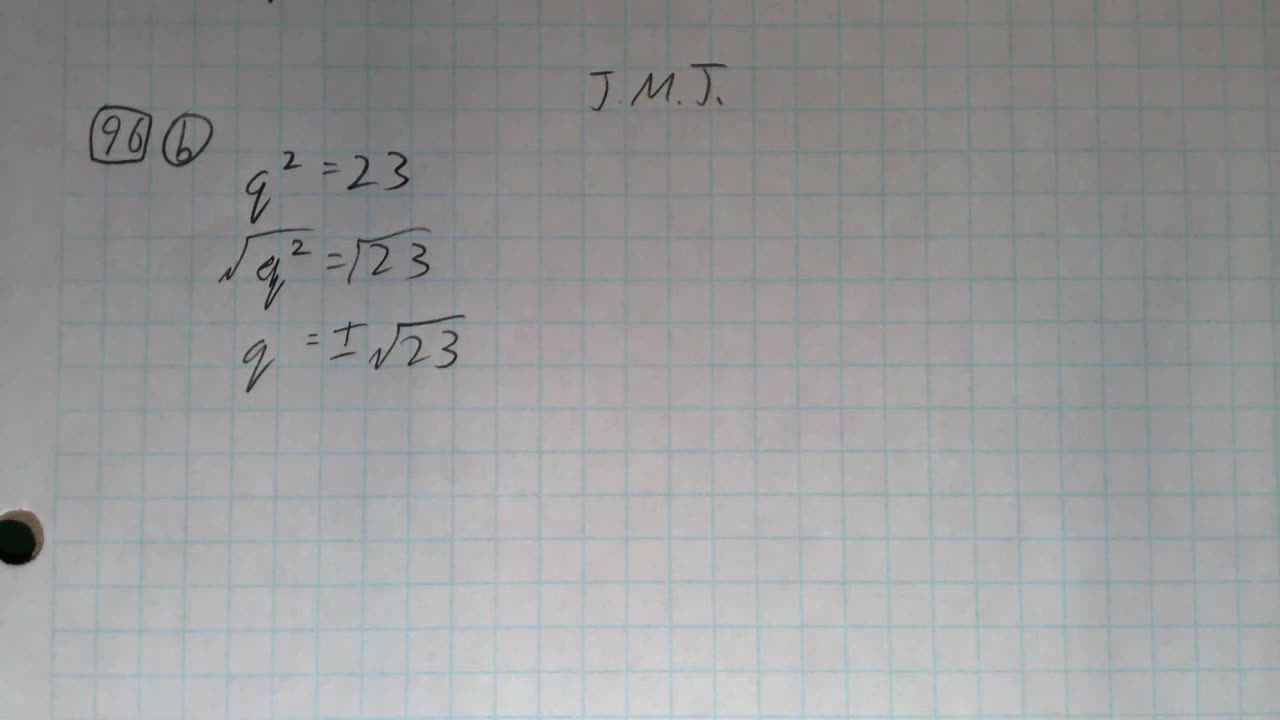 J.M.J.
96 b
q² = 23
√q² = √23
q = ±√23